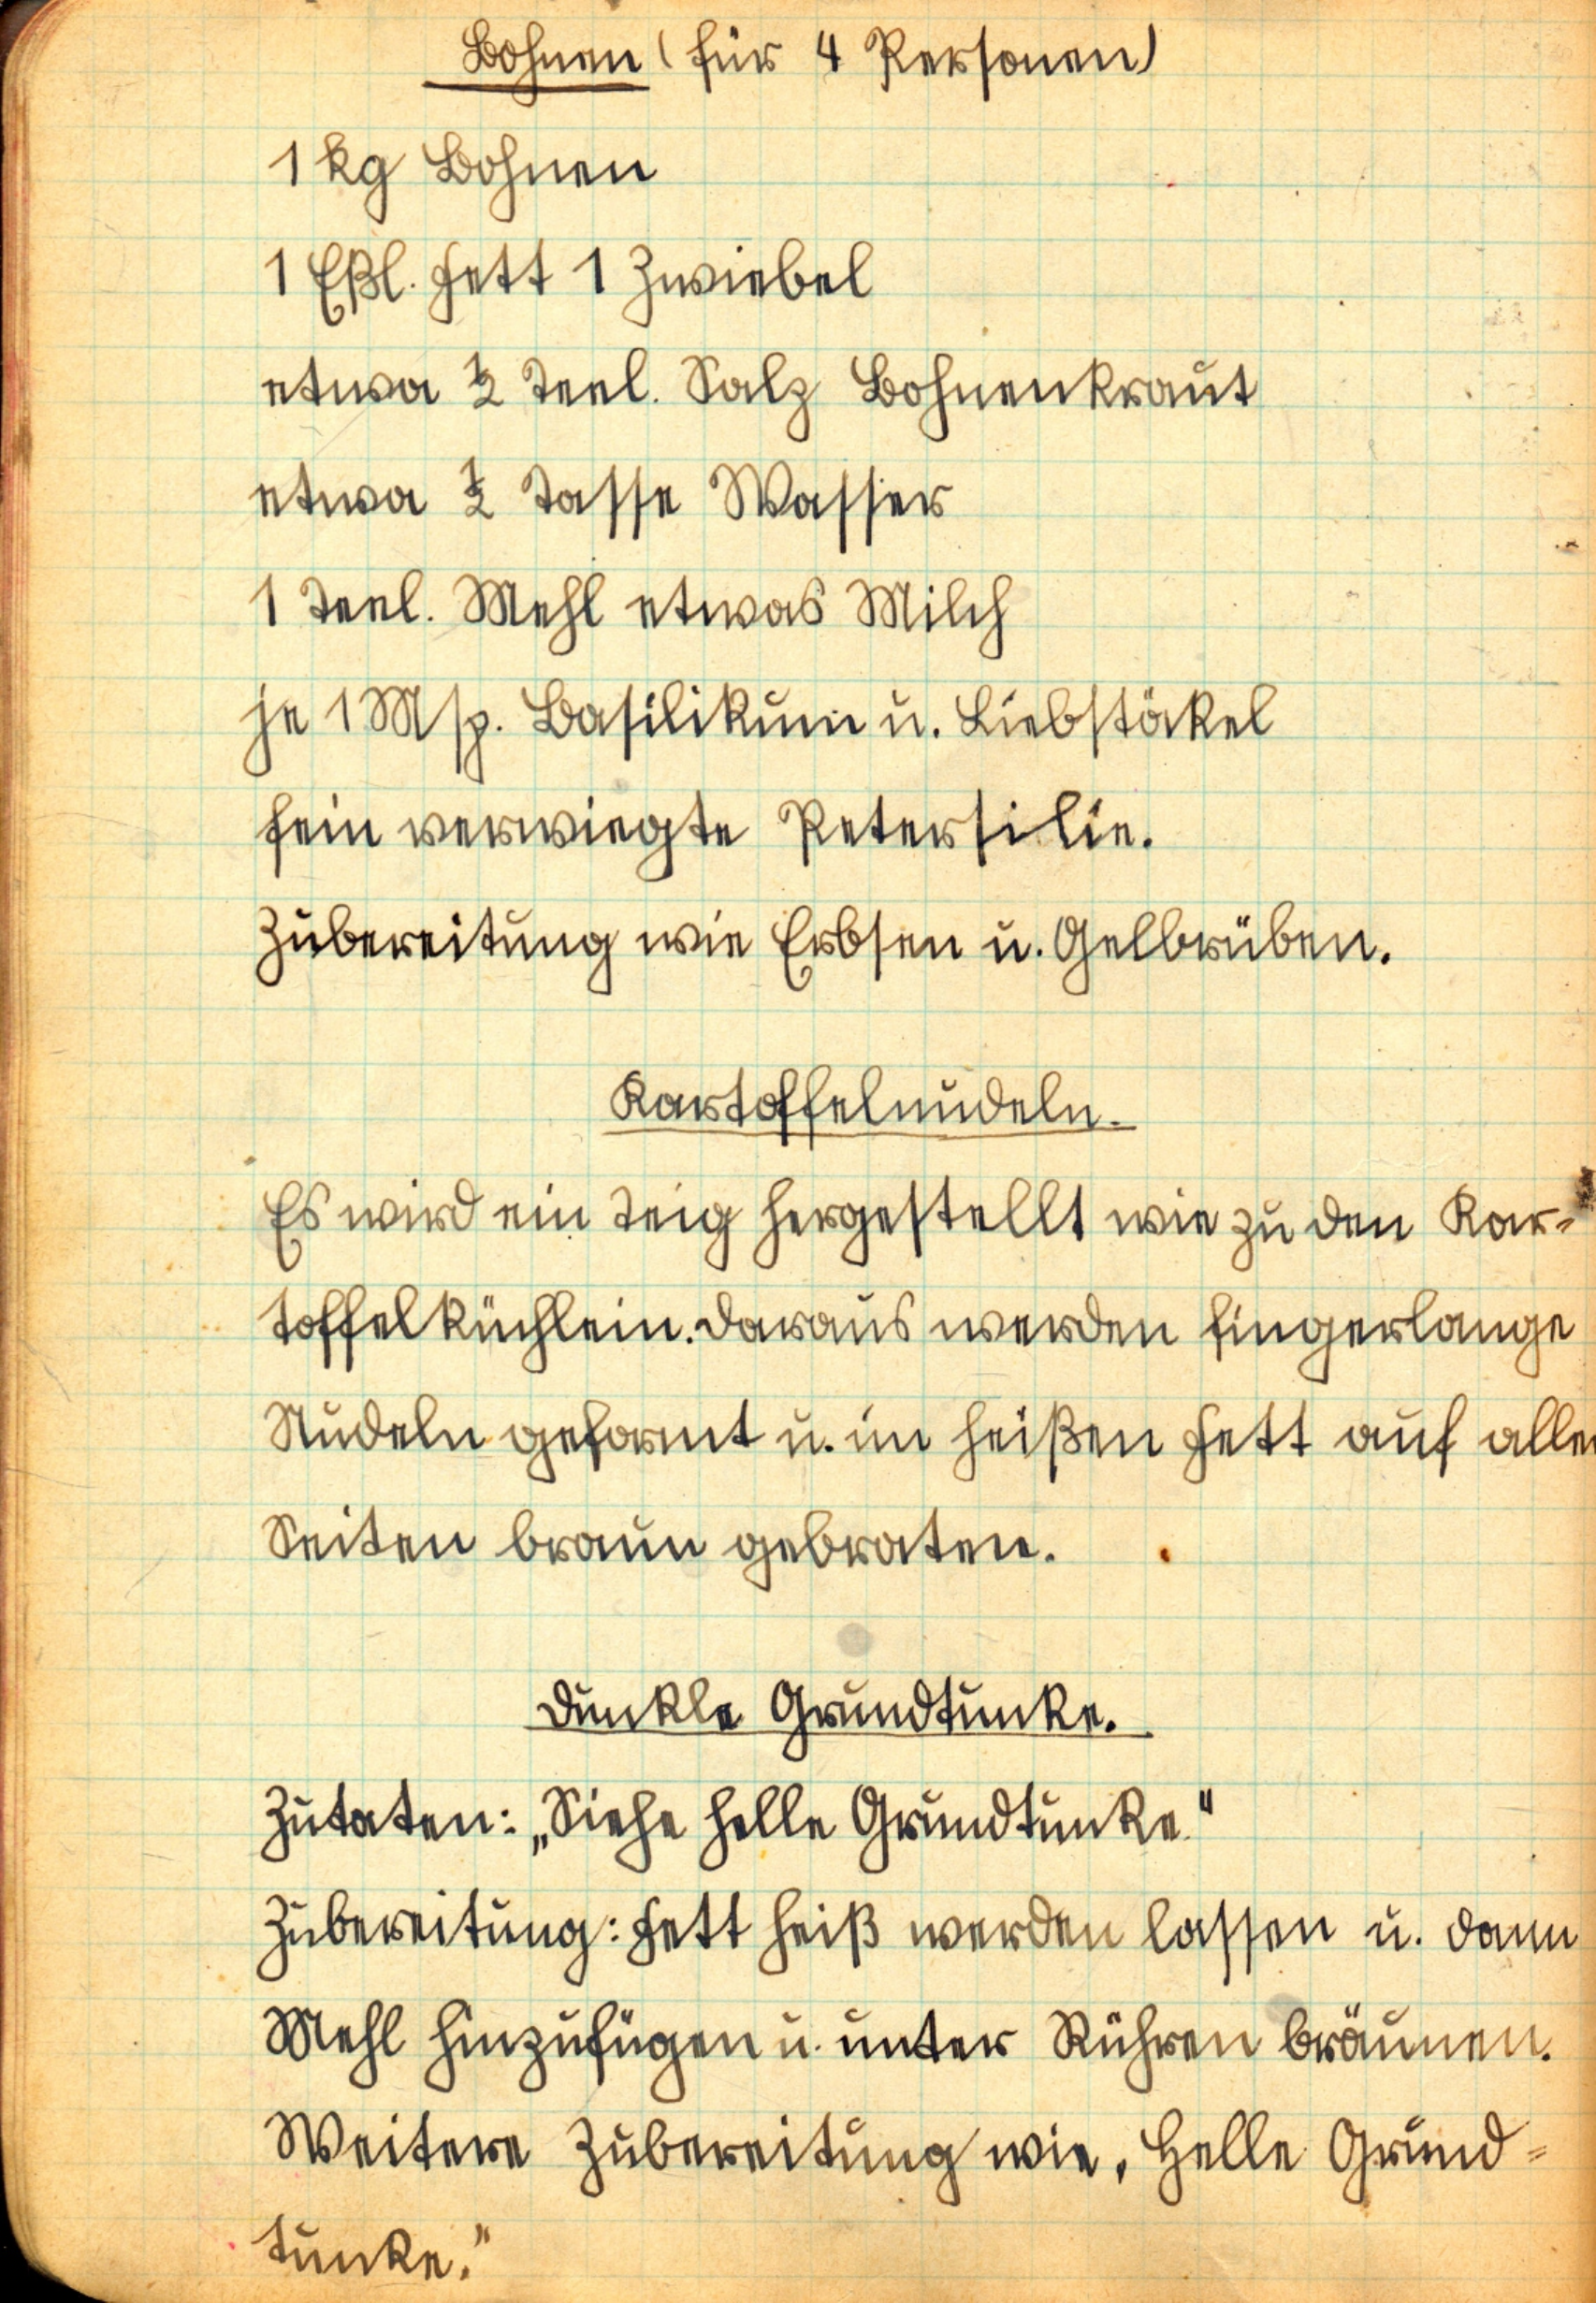 Bohnen (für 4 Personen)
1 kg Bohnen
1 Eßl. Fett 1 Zwiebel
etwa ½ Teel. Salz Bohnenkraut
etwa ½ Tasse Wasser
1 Teel. Mehl etwas Milch
je 1 Msp. Basilikum u. Liebstökel
fein verwiegte Petersilie.
Zubereitung wie Erbsen u. Gelbrüben.
Kartoffelnudeln.
Es wird ein Teig hergestellt wie zu den Kar-
toffelküchlein. Daraus werden fingerlange
Nudeln geformt u. im heißen Fett auf allen
Seiten braun gebraten.
Dunkle Grundtunke.
Zutaten: „Siehe helle Grundtunke."
Zubereitung: Fett heiß werden lassen u. dann
Mehl hinzufügen u. unter Rühren bräunen.
Weitere Zubereitung wie, Helle Grund-
tunke."